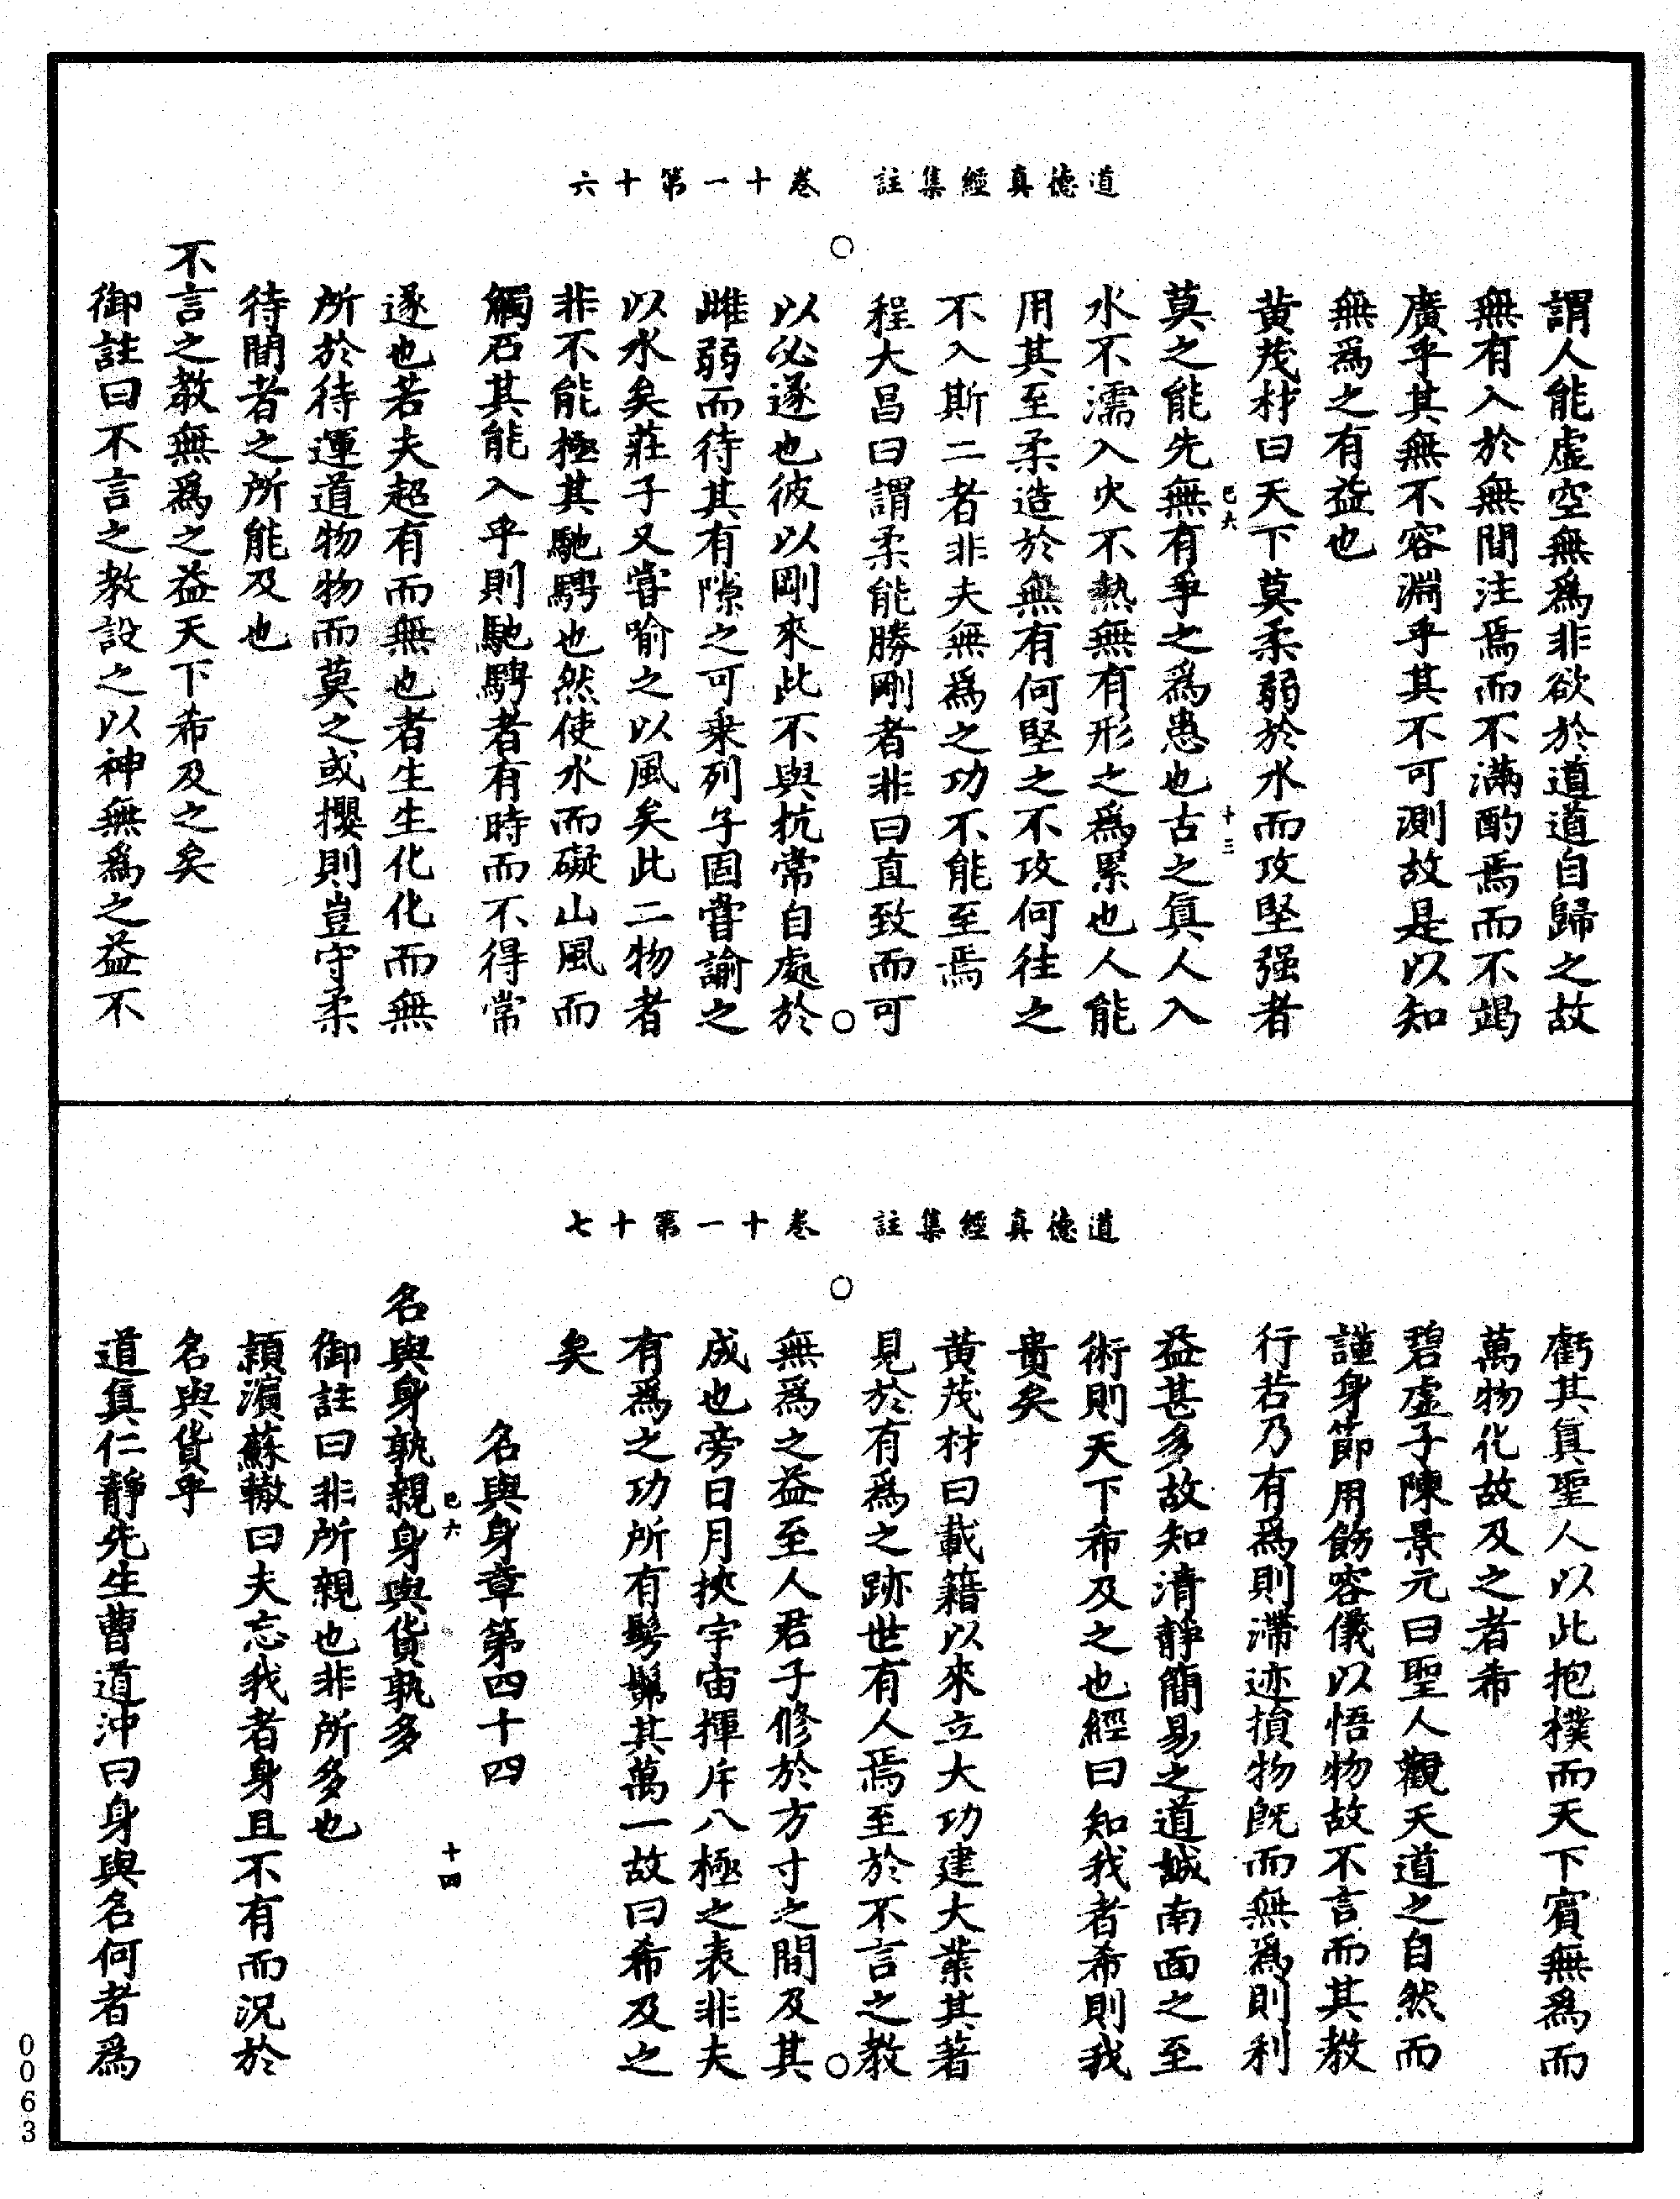 道德真經集註　卷十一第十六
謂人能虛空無為非欲於道道自歸之故
無有入於無間注焉而不滿酌焉而不竭
廣乎其無不容淵乎其不可測故是以知
無為之有益也
黃茂材曰天下莫柔弱於水而攻堅强者
巳六　十三
莫之能先無有乎之為患也古之真人入
水不濡入火不熱無有形之為累也人能
用其至柔造於無有何堅之不攻何往之
不入斯二者非夫無為之功不能至焉
程大昌曰謂柔能勝剛者非曰直致而可
以必遂也彼以剛來此不與抗常自處於
雌弱而待其有隙之可乘列子固嘗諭之
以水矣莊子又嘗喻之以風矣此二物者
非不能極其馳騁也然使水而礙山風而
觸石其能入乎則馳騁者有時而不得常
遂也若夫超有而無也者生生化化而無
所於待運道物物而莫之或攖則豈守柔
待間者之所能及也
不言之教無為之益天下希及之矣
御註曰不言之教設之以神無為之益不
道德真經集註　卷十一第十七
虧其真聖人以此抱樸而天下賓無為而
萬物化故及之者希
碧虛子陳景元曰聖人觀天道之自然而
謹身節用飭容儀以悟物故不言而其教
行若乃有為則滯迹損物既而無為則利
益甚多故知清靜簡易之道誠南面之至
術則天下希及之也經曰知我者希則我
貴矣
黃茂材曰載籍以來立大功建大業其著
見於有為之跡世有人焉至於不言之教
無為之益至人君子修於方寸之間及其
成也旁日月挾宇宙揮斥八極之表非夫
有為之功所有髣髴其萬一故曰希及之
矣
名與身章第四十四
巳六　十四
名與身孰親身與貨孰多
御註曰非所親也非所多也
潁濱蘇轍曰夫忘我者身且不有而況於
名與貨乎
道真仁靜先生曹道沖曰身與名何者為
0063